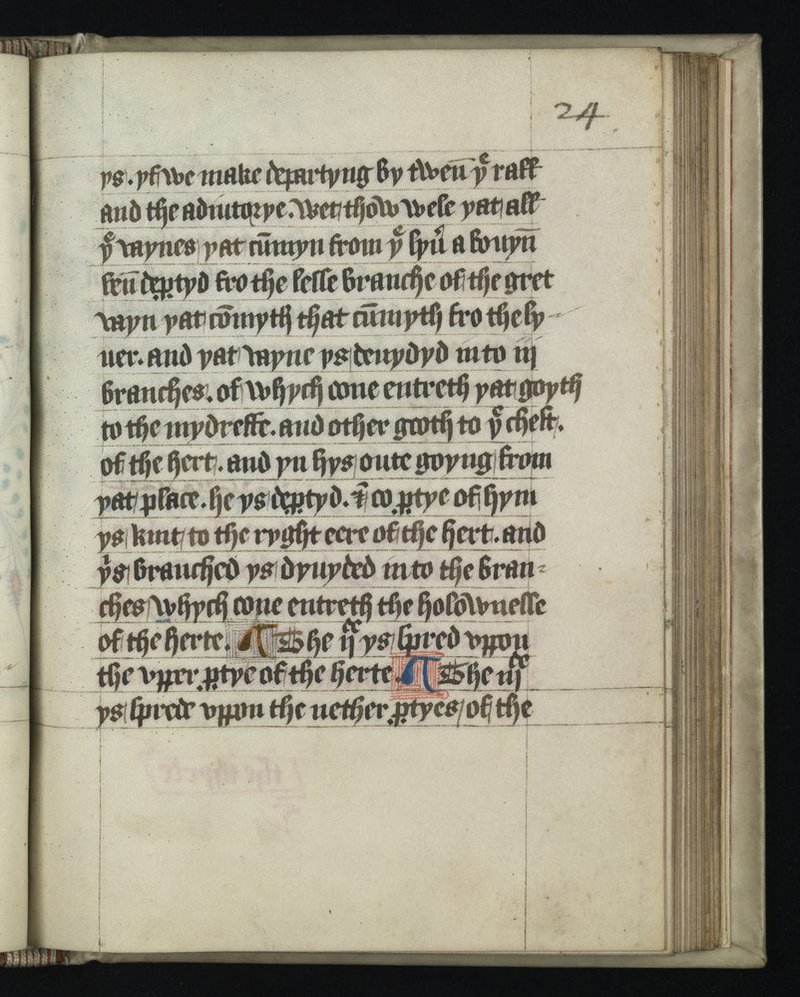 24
ys. yf we make departyng by twen̄ yͤ raff
and the adiutorye. Wet thow wele yat all
yͤ vaynes yat cūmyn from yͤ lyu̓ a bouyn̄
ben̄ dep̱tyd fro the lesse branche of the gret
vayn yat cōmyth that cūmyth fro the ly-
uer. and yat vayne ys deuydyd in to iij
branches. of whych oone entreth yat goyth
to the mydreffe. and other gooth to yͤ chest.
of the hert. and yn hys oute goyng from
yat place. he ys dep̱tyd. ⁊̄ oo p̱tye of hym
ys knit to the ryght eere of the hert. and
yͥs branched ys dyuyded in to the bran-
ches whych oone entreth the holōwnesse
of the herte. The ijͤ ys spred vppon
the vpper p̱tye of the herte. The iijͤ
ys sprede vppon the nether p̱tyes of the